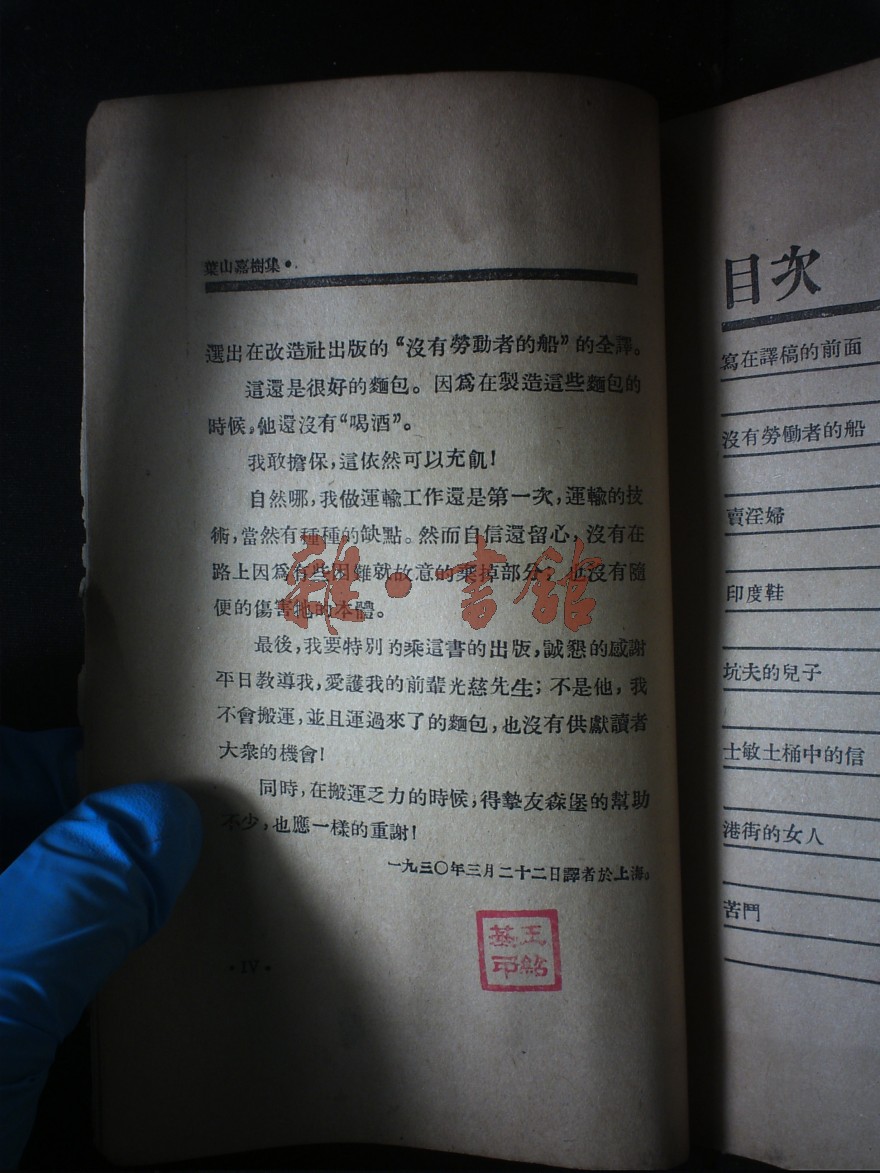 葉山嘉樹集•
選出在改造社出版的“沒有勞動者的船”的全譯。
這還是很好的麵包。因爲在製造這些麵包的
時候，他還沒有“喝酒”。
我敢擔保，這依然可以充飢！
自然哪，我做運輸工作還是第一次，運輸的技
術，當然有種種的缺點。然而自信還留心，沒有在
路上因爲有些困難就故意的乘掉部分；也沒有隨
便的傷害牠的本體。
最後，我要特別的乘這書的出版，誠懇的感謝
平日教導我，愛護我的前輩光慈先生；不是他，我
不會搬運，並且運過來了的麵包，也沒有供獻讀者
大衆的機會！
同時，在搬運乏力的時候，得摯友森堡的幫助
不少，也應一樣的重謝！
一九三〇年三月二十二日譯者於上海。
•IV•
雜•書館
目次
寫在譯稿的前面
沒有勞働者的船
賣淫婦
印度鞋
坑夫的兒子
士敏土桶中的信
港街的女人
苦鬥